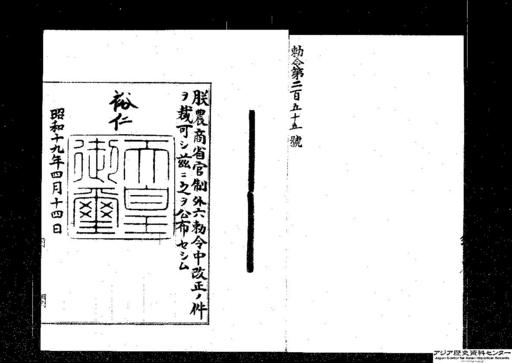 勅令第二百五十五號
朕農商省官制外六勅令中改正ノ件
ヲ裁可シ茲ニ之ヲ公布セシム
裕仁
天皇
御璽
昭和十九年四月十四日
アジア歴史資料センター
Japan Center for Asian Historical Records